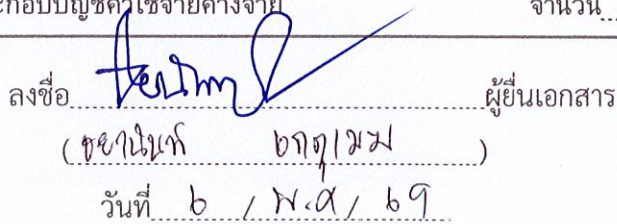 ะกอบบัญชีค่าใช้จ่ายค้างจ่าย จำนวน
ลงชื่อ ผู้ยื่นเอกสาร
( ชยานันท์ )
วันที่ ๖ / พ.ค / ๖๙